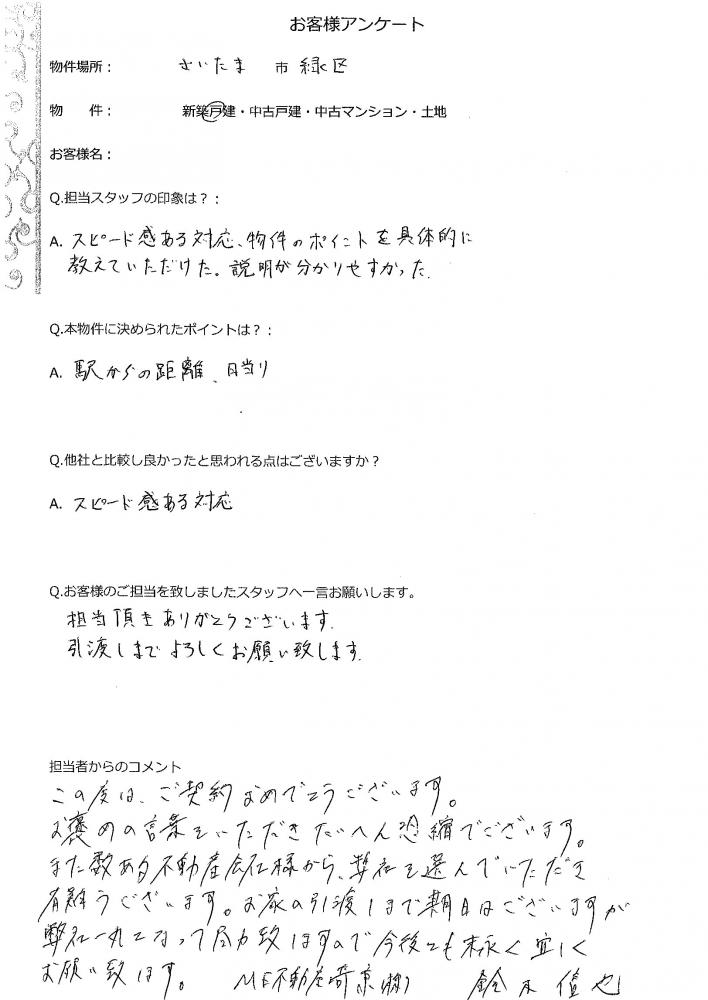 お客様アンケート
物件場所： さいたま 市 緑区
物　　件： 新築戸建・中古戸建・中古マンション・土地
お客様名：
Q.担当スタッフの印象は？：
A. スピード感ある対応、物件のポイントを具体的に
教えていただけた。説明が分かりやすかった.
Q.本物件に決められたポイントは？：
A. 駅からの距離、日当り
Q.他社と比較し良かったと思われる点はございますか？
A. スピード感ある対応
Q.お客様のご担当を致しましたスタッフへ一言お願いします。
担当頂きありがとうございます.
引渡しまでよろしくお願い致します.
担当者からのコメント
この度は、ご契約おめでとうございます。
お褒めの言葉をいただきたいへん恐縮でございます。
また数ある不動産会社様から、弊社を選んでいただき
有難うございます。お家の引渡しまで期日はございますが
弊社一丸となって尽力致しますので今後とも末永く宜しく
お願い致します。 ME不動産埼京(株) 鈴木信也